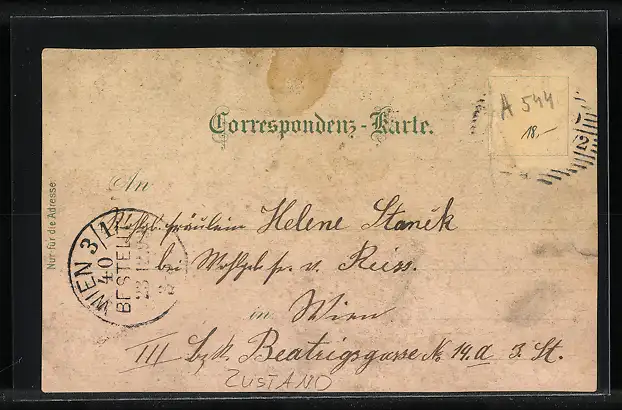 A 544
18.-
Correspondenz-Karte.
2
An
Nur für die Adresse
Wohlgb. Fräulein Helene Staněk
WIEN 3/1
40
BESTELLT
bei Wohlgeb fr. v. Reiss.
in Wien
III bzk. Beatrigsgasse No 14.a 3. St.
ZUSTAND